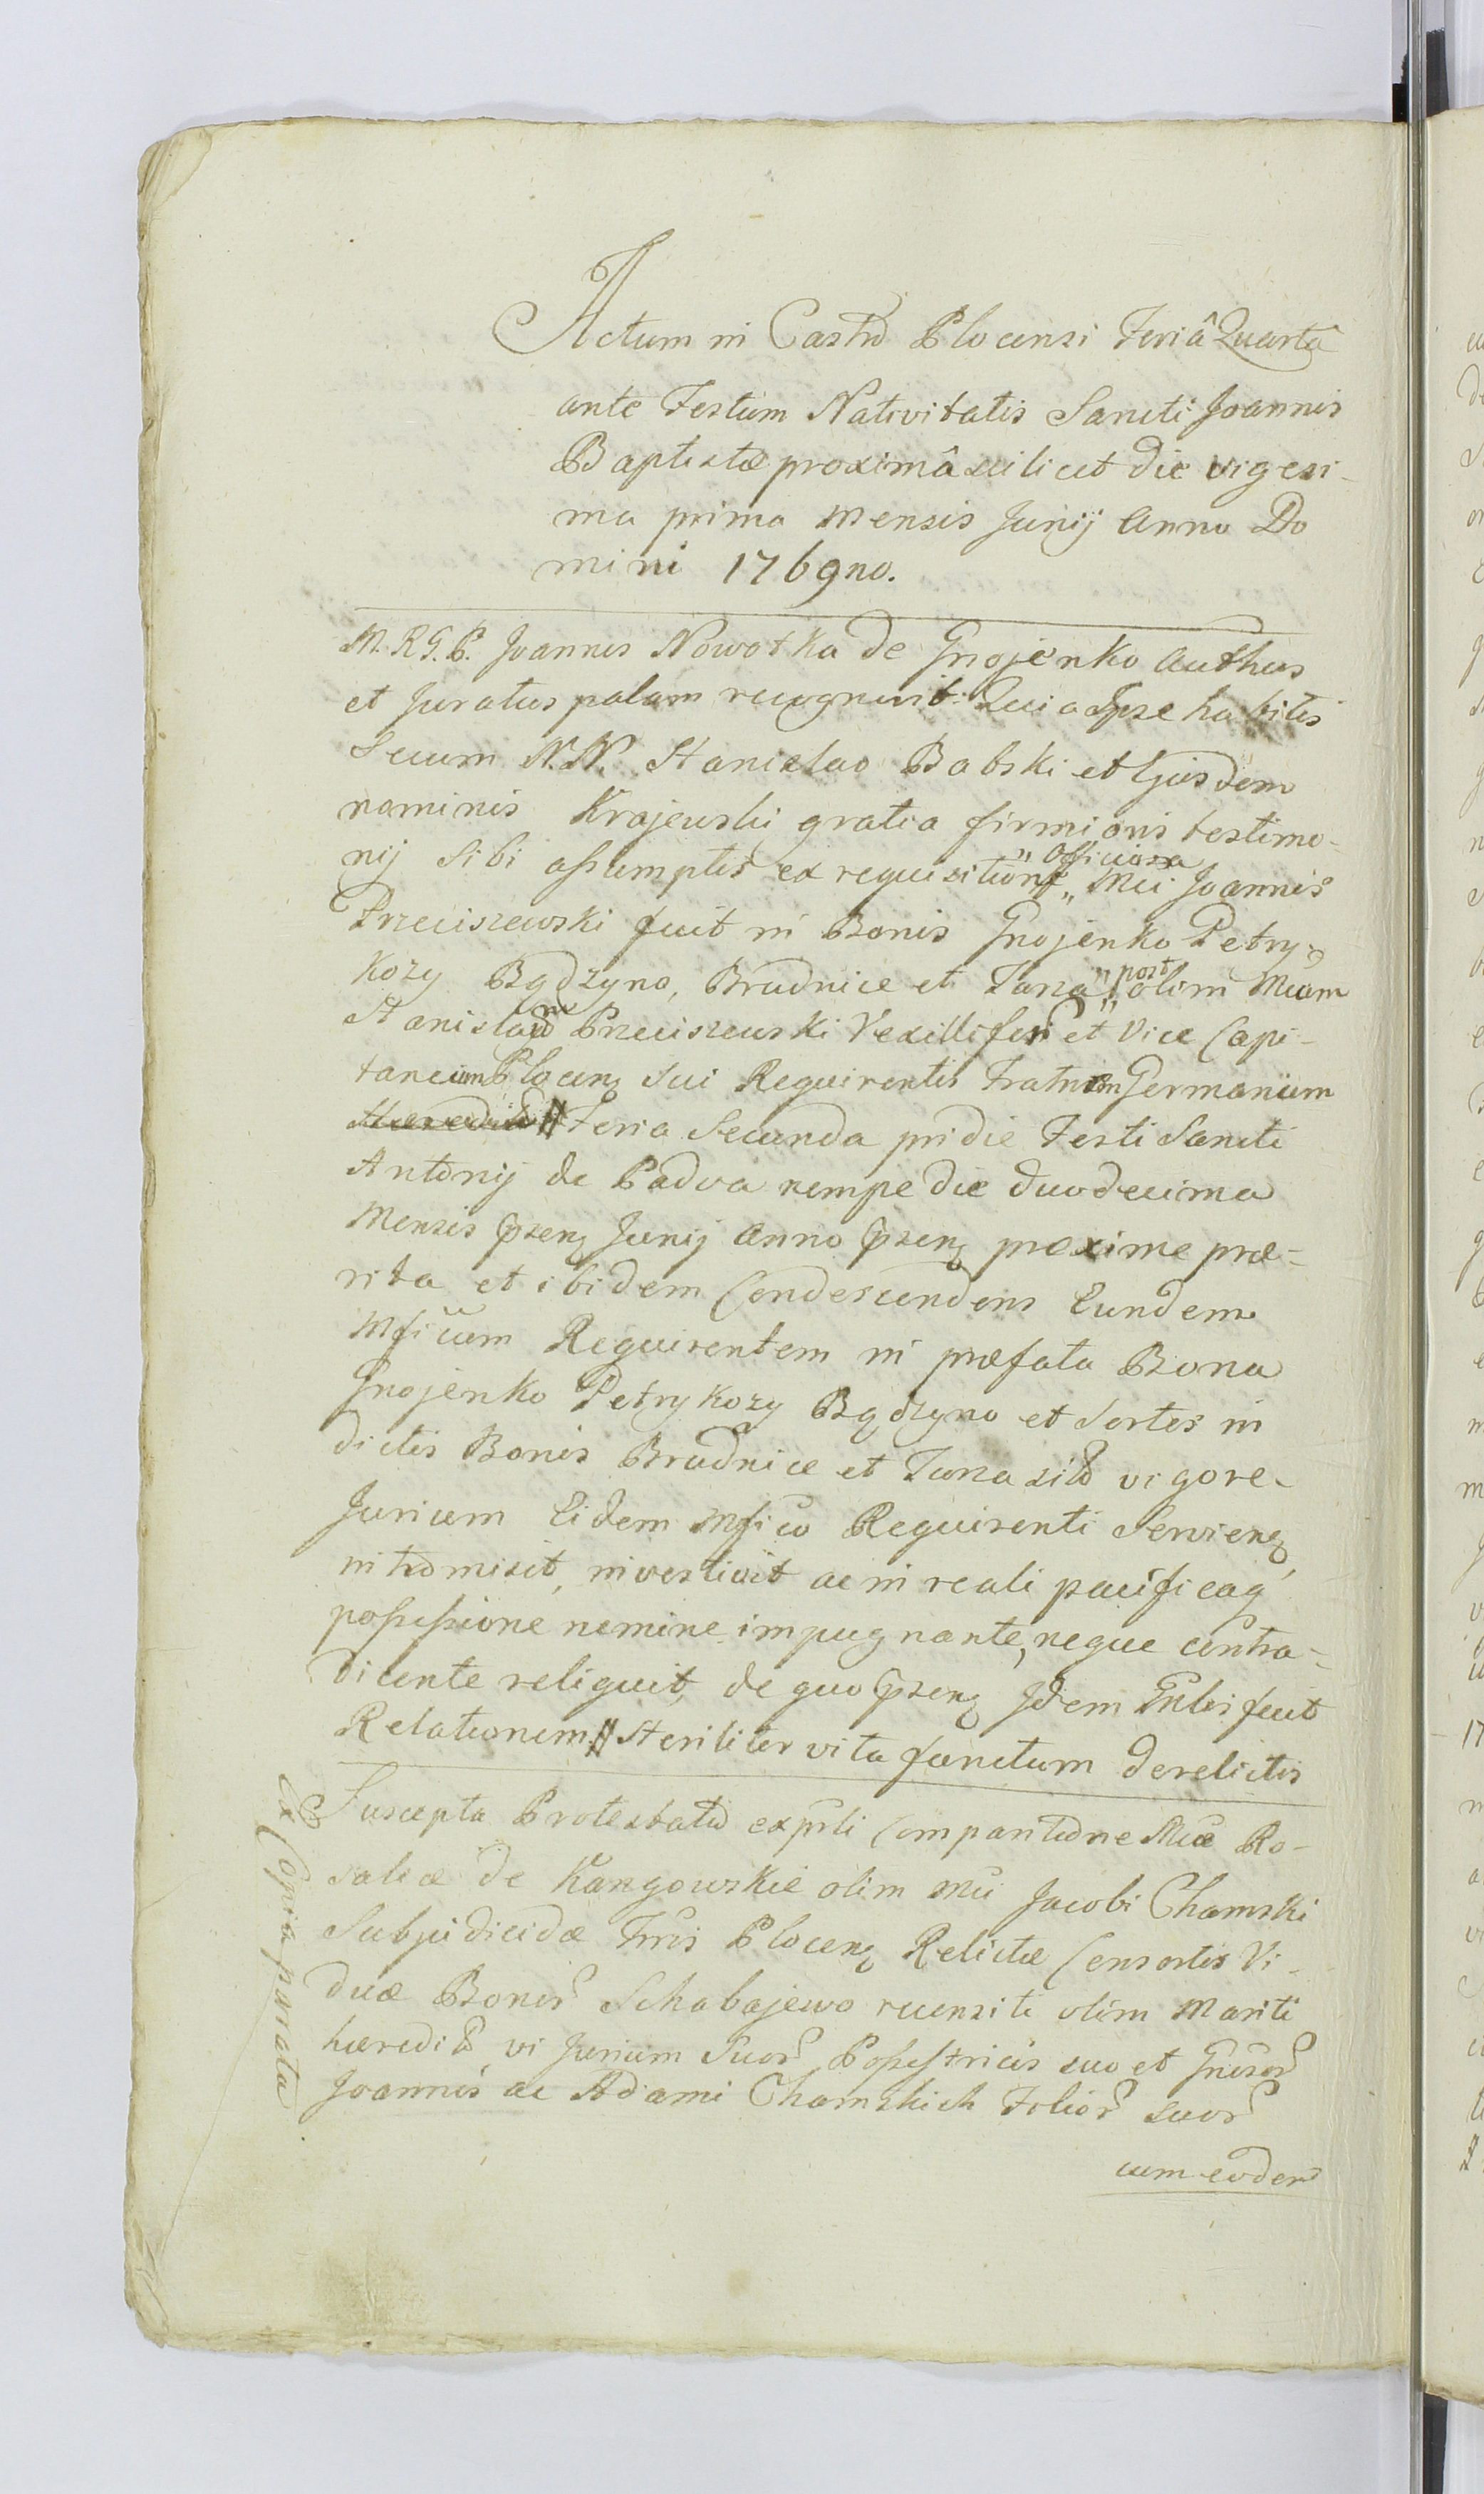 Actum in Castro Plocensi Feriâ Quartâ
ante Festum Nativitatis Sancti Joannis
Baptistæ proximâ scilicet die vigesi-
ma prima mensis Junij Anno Do
mini 1769no.
M. R G. P. Joannes Nowotka de Gnojenko Authus
et Juratus palam recognovit. Quia Ipse habitis
Secum N.N. Stanislao Babski et Ejusdem
nominis Krajewski gratia firmioris testimo-
nij Sibi assumptis ex requisitione „ officiosa „ Mci Joannis
Przeciszewski fuit in Bonis Gnojenko Petry-
kozy Bądzyno, Brudnice et Tarza „ post „ olim Mcum
Stanislaum Przeciszewski Vexilliferum et Vice Capi-
taneum Plocens Sui Requirentis Fratrem Germanum
// Feria Secunda pridie Festi Sancti
Antonij de Padva nempe die duodecima
Mensis psens Junij Anno psens proxime præ-
rita et ibidem Condescendens Eundem
Mficum Requirentem in præfata Bona
Gnojenko Petrykozy Bądzyno et Sortes in
dictis Bonis Brudnice et Tarza sitas vigore
Jurium Eidem Mfico Requirenti Serviens,
intromisit, investivit ac in reali pacificaq
possessione nemine impugnante, neque contra-
dicente reliquit, de quo psens Idem Gnlis fecit
Relationem // Steriliter vita functum derelictis
Suscepta Protestatio expsli Compantione Mcæ Ro-
saliæ de Kangowskie olim Mci Jacobi Chamski
Subjudicidæ Tris Plocens Relictæ Consortis Vi-
duæ Bonor Schabajewo recensiti olim Mariti
hæredit, vi Jurium Suor Possestricis suo et Gnsor
Joannis ac Adami Chamskich Filior suor
cum eodem
Copia parata